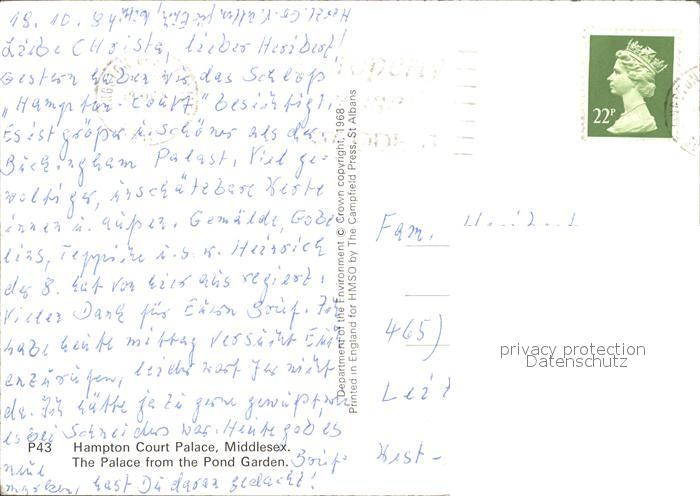 18.10.84
Liebe Christa, lieber Heribert!
Gestern haben wir das Schloß
"Hampton-Court" besichtigt.
Es ist größer u. schöner als der
Buckingham Palast, Viel ge-
waltiger, unschätzbare Werte
innen u. außen. Gemälde, Gobe
lins, Teppiche u.s.w. Heinrich
der 8. hat von hier aus regiert.
Vielen Dank für Euern Brief. Ich
habe heute mittag versucht Euch
anzurufen, leider wart Ihr nicht
da. Ich hätte ja zu gerne gewußt, wie
es bei Schneiders war. Heute gab es
neue Brief-
marken, hast Du daran gedacht!
P43 Hampton Court Palace, Middlesex.
The Palace from the Pond Garden.
Department of the Environment © Crown copyright, 1968
Printed in England for HMSO by The Campfield Press, St Albans
22P
Fam.
465)
West-
privacy protection
Datenschutz